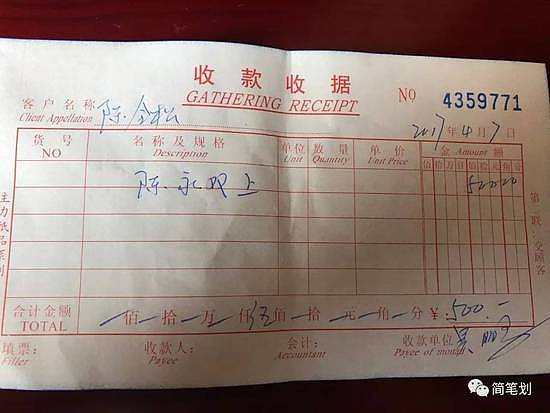 收款收据
GATHERING RECEIPT
NO 4359771
客户名称 陈令松
Client Appellation
2017年4月7日
货号 名称及规格 单位 数量 单价 金 Amount 额
NO Description Unit Quantity Unit Price 佰 拾 万 仟 佰 拾 元 角 分
陈永双上 50000
合计金额 佰 拾 万 仟伍佰 拾 元 角 分 ¥:500.-
TOTAL
填票: 收款人: 会计: 收款单位:
Filler Payee Accountant Payee of
主力纸品系列
第 联:交顾客
简笔划